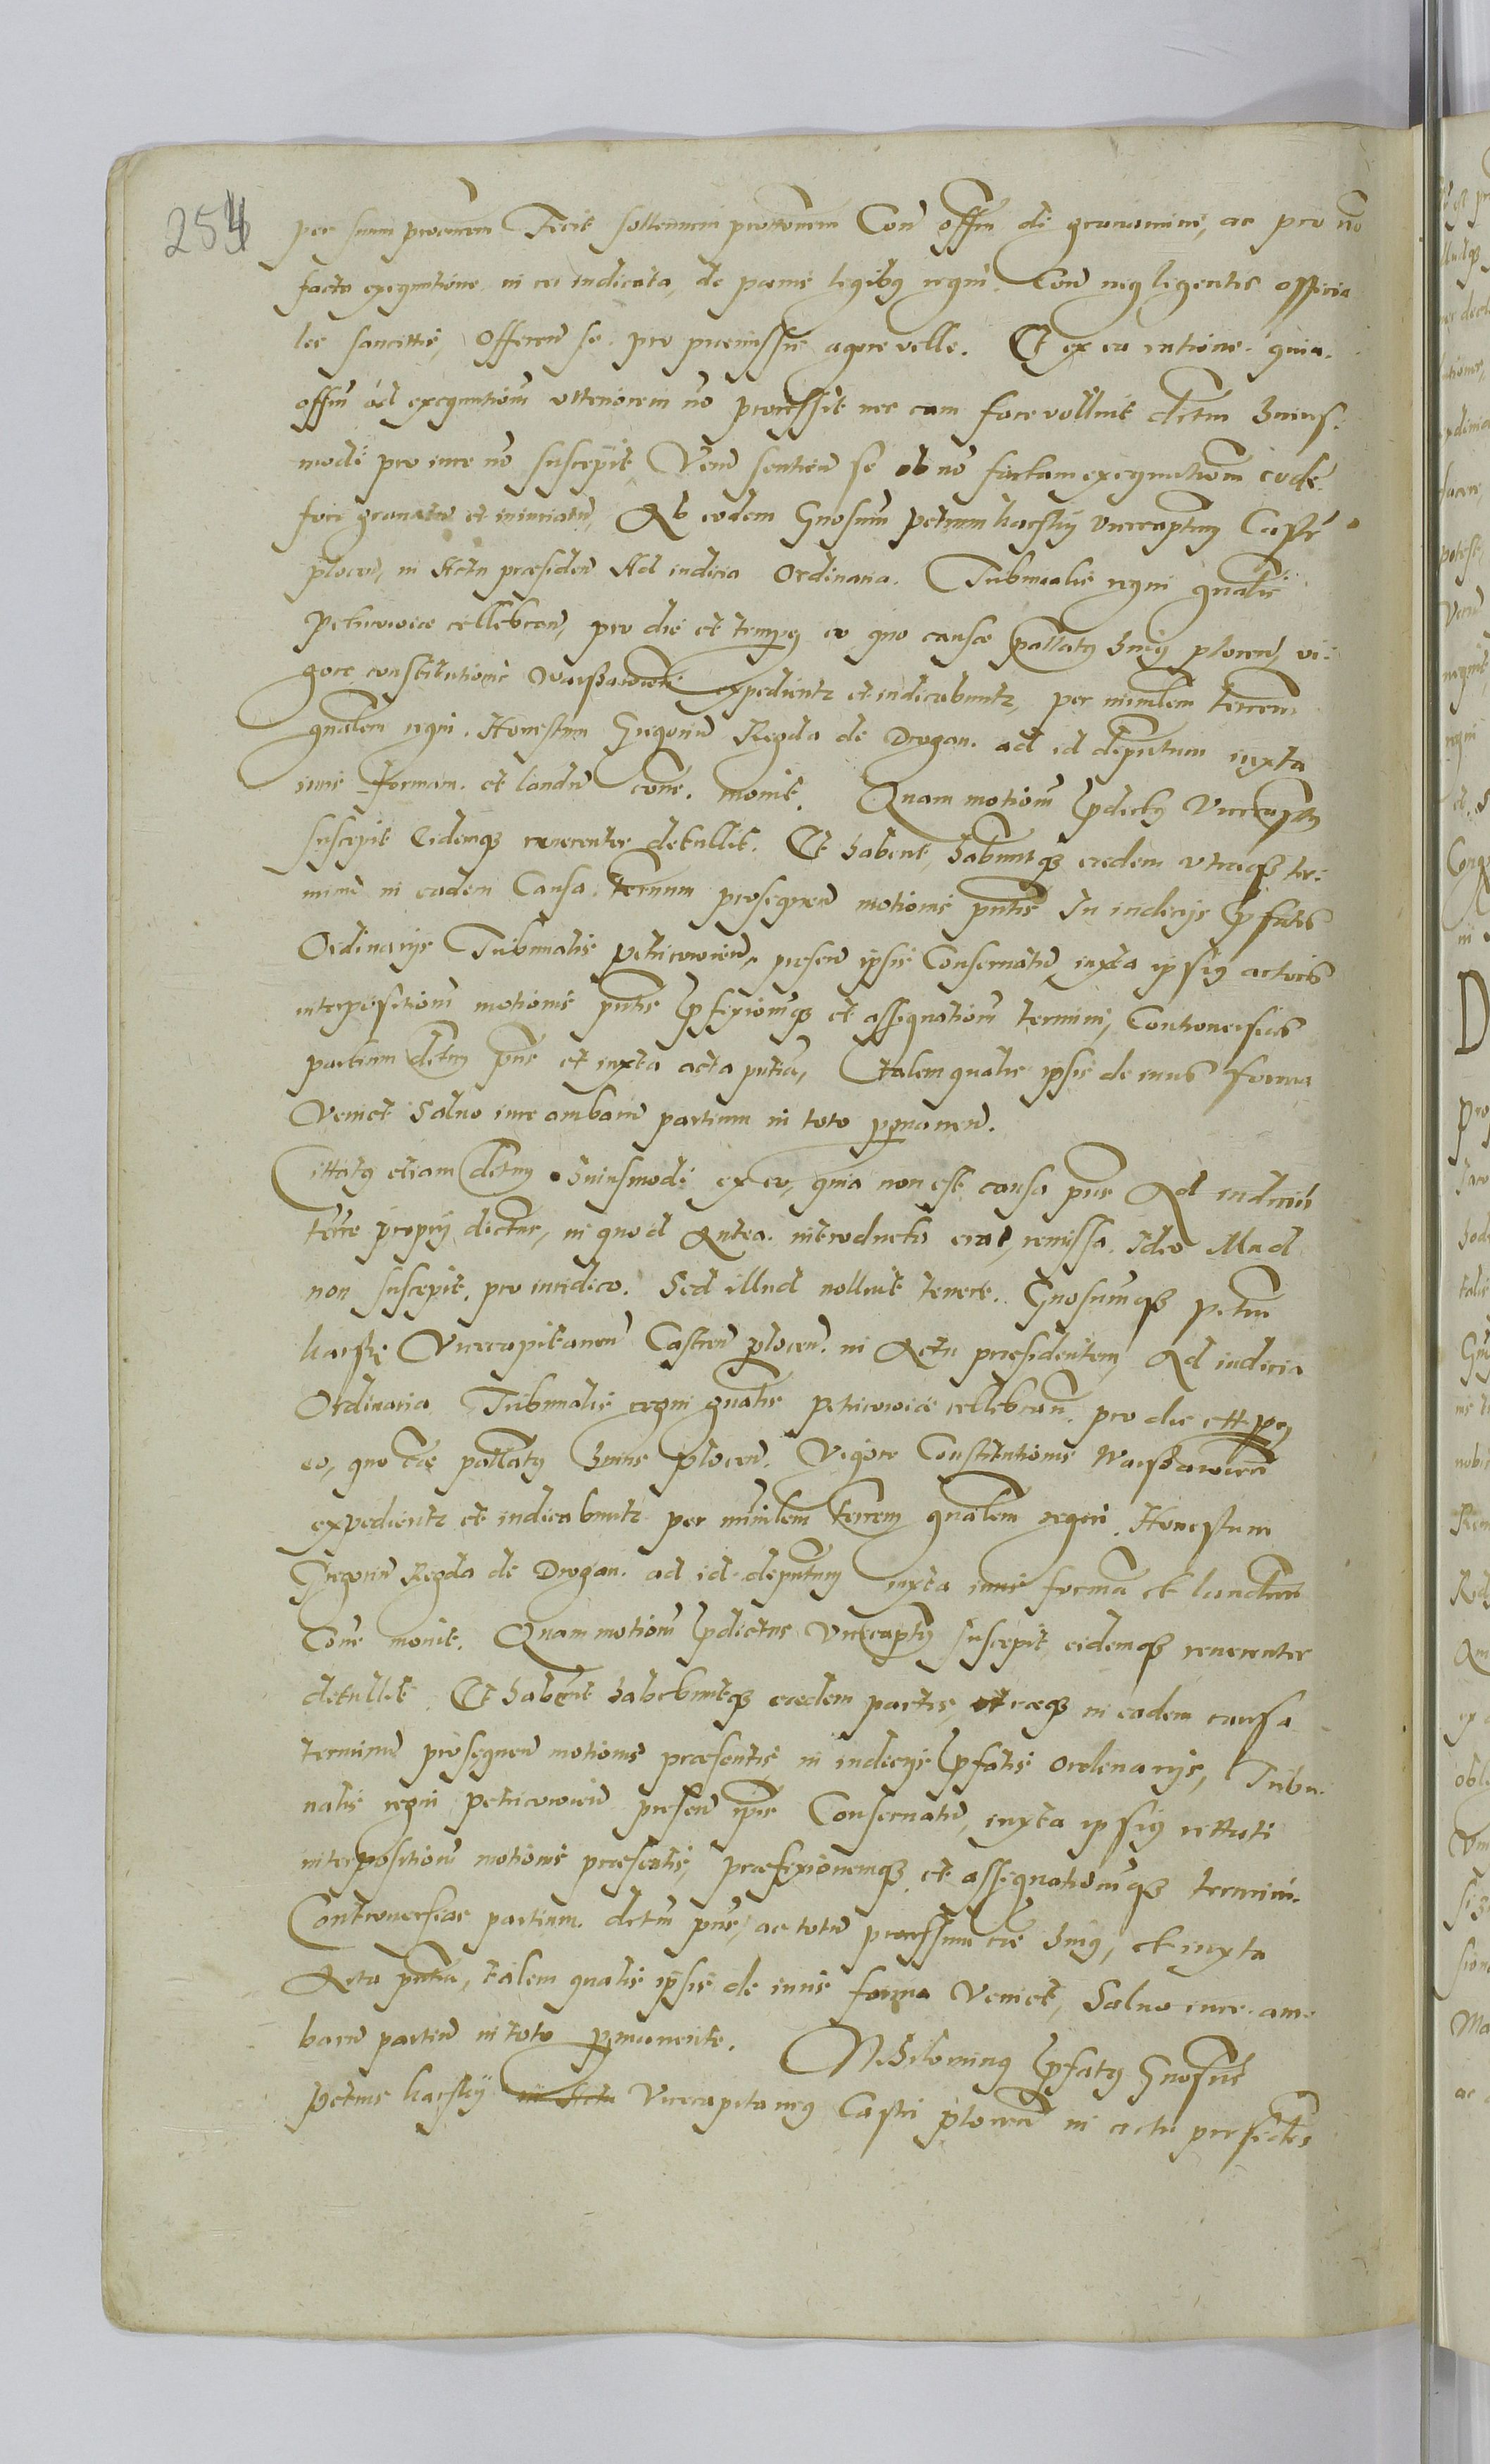 254
per suum procurem Fecit sollemnem prottonem Con offm de gravamine, ac pro no
facta exequutione in rei iudicata, de poenis legibus regni. Con negligentes officia
les sancittis, Offeren se pro praemissis agere velle. Et ex ea ratione quia
offm ad exequutiom ulteriorem no processit nec eam facere volluit dctm huius
modi pro iure no suscepit, Vem sentien se ob no factam exequutiom eode
fore gravatu et iniuriatu, Ab eodem Gnosum Petrum karsky vicecaptum Castr
plocen, in Actu praesiden Ad iudicia Ordinaria Tribunalis regni gnalis
Petricoviae cellebran, pro die et tempus eo quo causae pallatus huius plocen, vi
gore constitutionis Warssaviens expedientr et iudicabuntr, per ministem terrem
gnalem regni. Honestum Gregoriu Regda de Drogan. ad id deputum iuxta
iuris formam et laudu cone. monit. Quam motiom pdictus Vicecaptus
suscepit Eidemq reverenter detullit. Et habent, habuntq eaedem utraeq ter
minu in eadem Causa termum prosequen motionis pntis In iudicys pfatis
Ordinarys Tribunalis petricovien, presen ipsis Conservatu, iuxta ipsius actoris
interpositiom motionis pntis pfixiomq et assignatiom termini, Controversias
partium dctm pns et iuxta acta pntia, talem qualis ipsis de iuris forma
Veniet Salvo iure ambaru partium in toto pmanen.
Cittatus etiam dctum huiusmodi ex eo, quia non est causa pns Ad iudiciu
terre propry dictur, in quod Antea introducta erat, remissa. Ideo Illud
non suscepit, pro iuridico. Sed illud nolluit tenere. Gnosumq Petru
karsky Vicecapitaneu Castren plocen. in Actu praesidentem, Ad iudicia
Ordinaria Tribunalis regni gnalis Petricoviae cellebran. pro die et tpus
eo, quo cae pallatus huius plocen. Vigore Constitutionis Warssaviens
expedientr et iudicabuntr per ministem terrem gnalem regni. Honestum
Gregoriu Regda de Drogan. ad id deputum iuxta iuris forma et laudum
Cone monit. Quam motiom pdictus Vicecaptus suscepit eidemq reverenter
detullit. Et habent habebuntq eaedem partes, utraeq in eadem causa
terminu prosequen motionis praesentis, in iudicys pfatis ordinarys, Tribu
nalis regni petricovien presen ipsis Conservatu, iuxta ipsius cittati
interpositiom motionis praesentis, praefixionemq et assignatiomq termini.
Controversias partium. dctm pns, ac totu processum cae huius, et iuxta
Acta pntia, talem qualis ipsis de iuris forma Veniet, Salvo iure am
baru partiu in toto pmanente. Nihilominus pfatus Gnosus
Petrus karsky in Actu Vicecapitaneus Castri plocen in actu presidens